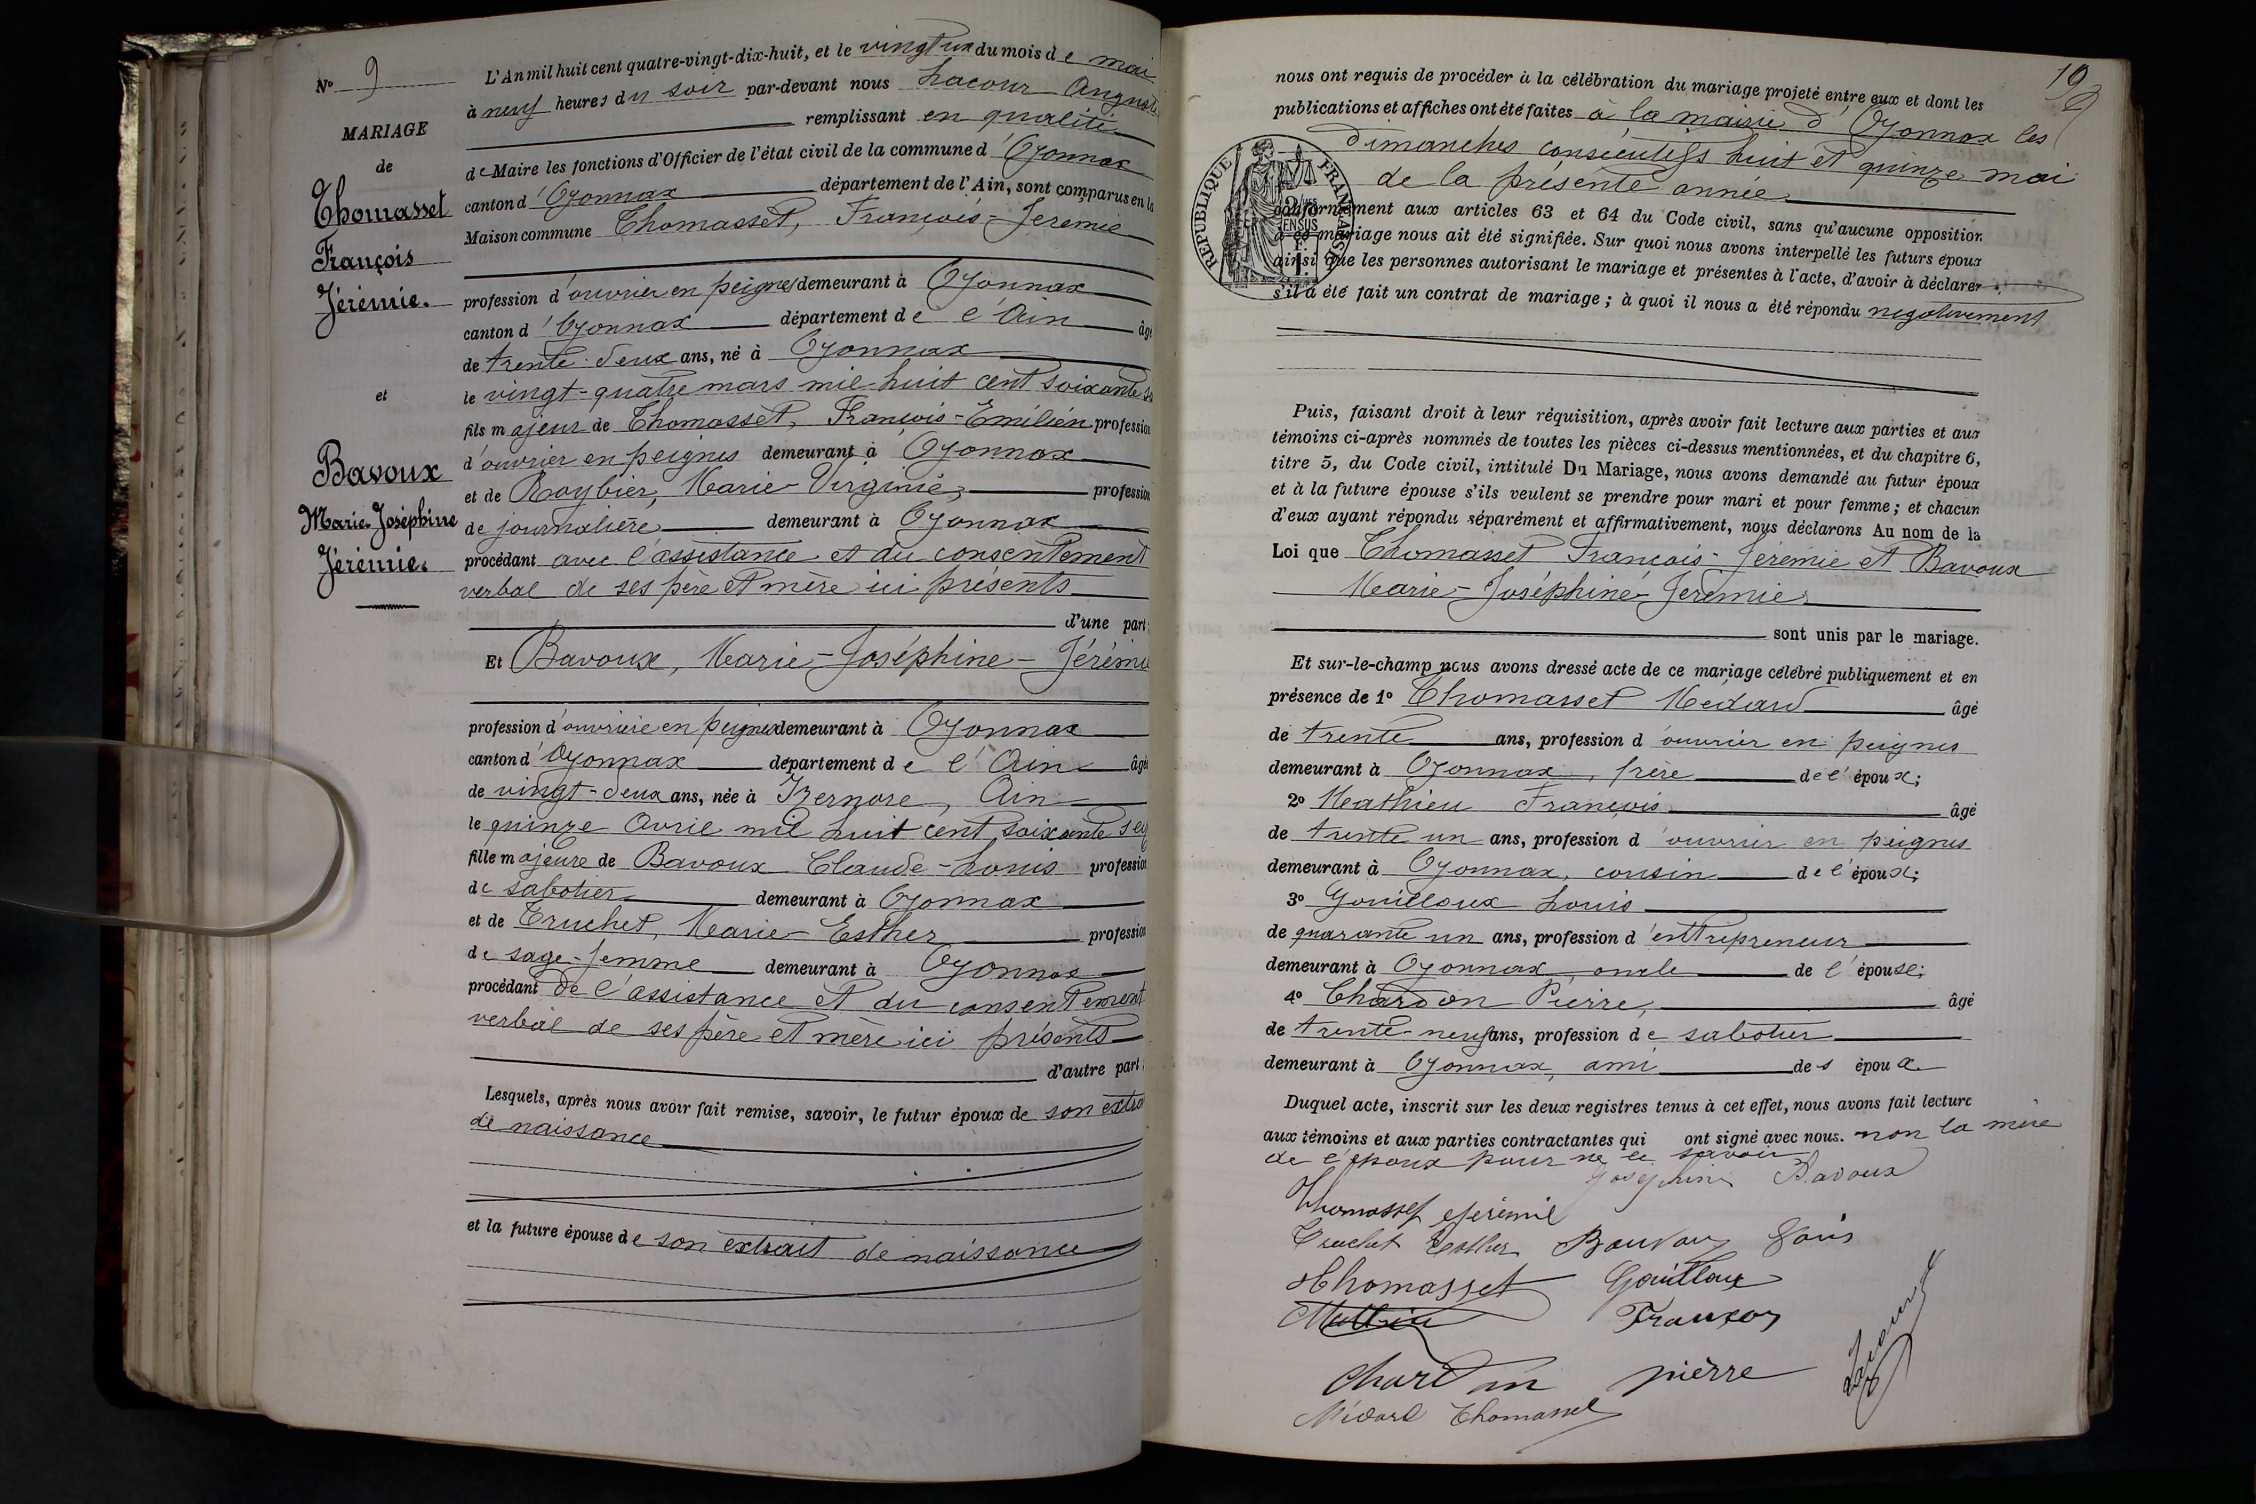 N° 9
MARIAGE
de
Thomasset
François
Jérémie.
et
Bavoux
Marie-Joséphine
Jérémie.
L'An mil huit cent quatre-vingt-dix-huit, et le vingt un du mois de mai
à neuf heures du soir par-devant nous Lacour Auguste
remplissant en qualité
de Maire les fonctions d'Officier de l'état civil de la commune d'Oyonnax
canton d'Oyonnax département de l'Ain, sont comparus en la
Maison commune Thomasset, François-Jérémie
profession d'ouvrier en peignes demeurant à Oyonnax
canton d'Oyonnax département de l'Ain âgé
de trente-deux ans, né à Oyonnax
le vingt-quatre mars mil-huit cent soixante
fils majeur de Thomasset, François-Emilien profession
d'ouvrier en peignes demeurant à Oyonnax
et de Roybier, Marie-Virginie, profession
de journalière demeurant à Oyonnax
procédant avec l'assistance et du consentement
verbal de ses père et mère ici présents
d'une part;
Et Bavoux, Marie-Joséphine-Jérémie
profession d'ouvrière en peignes demeurant à Oyonnax
canton d'Oyonnax département de l'Ain âgée
de vingt-deux ans, née à Izernore, Ain
le quinze Avril mil huit cent soixante
fille majeure de Bavoux Claude-Louis profession
de sabotier demeurant à Oyonnax
et de Truchet, Marie-Esther profession
de sage-femme demeurant à Oyonnax
procédant de l'assistance et du consentement
verbal de ses père et mère ici présents
d'autre part.
Lesquels, après nous avoir fait remise, savoir, le futur époux de son extrait
de naissance
et la future épouse de son extrait de naissance
10
nous ont requis de procéder à la célébration du mariage projeté entre eux et dont les
publications et affiches ont été faites à la mairie d'Oyonnax les
dimanches consécutifs huit et quinze mai
de la présente année
conformément aux articles 63 et 64 du Code civil, sans qu'aucune opposition
à ce mariage nous ait été signifiée. Sur quoi nous avons interpellé les futurs époux
ainsi que les personnes autorisant le mariage et présentes à l'acte, d'avoir à déclarer
s'il a été fait un contrat de mariage; à quoi il nous a été répondu négativement
REPUBLIQUE FRANÇAISE
Puis, faisant droit à leur réquisition, après avoir fait lecture aux parties et aux
témoins ci-après nommés de toutes les pièces ci-dessus mentionnées, et du chapitre 6,
titre 5, du Code civil, intitulé Du Mariage, nous avons demandé au futur époux
et à la future épouse s'ils veulent se prendre pour mari et pour femme; et chacun
d'eux ayant répondu séparément et affirmativement, nous déclarons Au nom de la
Loi que Thomasset François-Jérémie et Bavoux
Marie-Joséphine-Jérémie
sont unis par le mariage.
Et sur-le-champ nous avons dressé acte de ce mariage célébré publiquement et en
présence de 1° Thomasset Médard âgé
de trente ans, profession d'ouvrier en peignes
demeurant à Oyonnax, frère de l'époux;
2° Mathieu François âgé
de trente un ans, profession d'ouvrier en peignes
demeurant à Oyonnax, cousin de l'époux;
3° Gouilloux Louis
de quarante un ans, profession d'entrepreneur
demeurant à Oyonnax, oncle de l'épouse;
4° Chardon Pierre, âgé
de trente-neuf ans, profession de sabotier
demeurant à Oyonnax, ami des époux
Duquel acte, inscrit sur les deux registres tenus à cet effet, nous avons fait lecture
aux témoins et aux parties contractantes qui ont signé avec nous. non la mère
de l'époux pour ne le savoir
Joséphine Bavoux
Thomasset Jérémie
Truchet Esther Bavoux Louis
Thomasset Gouilloux
Mathieu François
Chardon pierre
Lacour
Médard Thomasset